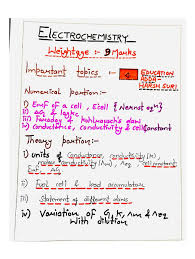 ELECTROCHEMISTRY
Weightage :- 9 Marks
Important topics :-
EDUCATION
WITH
HARSH SIR!
Numerical portion:-
i) Emf of a cell, Ecell {Nearnst eqn}
ii) ΔG & logkc
iii) Faraday & Kohlrausch's law
iv) conductance, conductivity & cell Constant
Theory portion:-
i) units of Conductance, conductivity (κ)
molar conductivity Λm, Λeq, cell constant
Emf, ΔG
ii) Fuel cell & lead accumulator
iii) Statement of different laws
iv) Variation of G, K, Λm & Λeq
With dilution